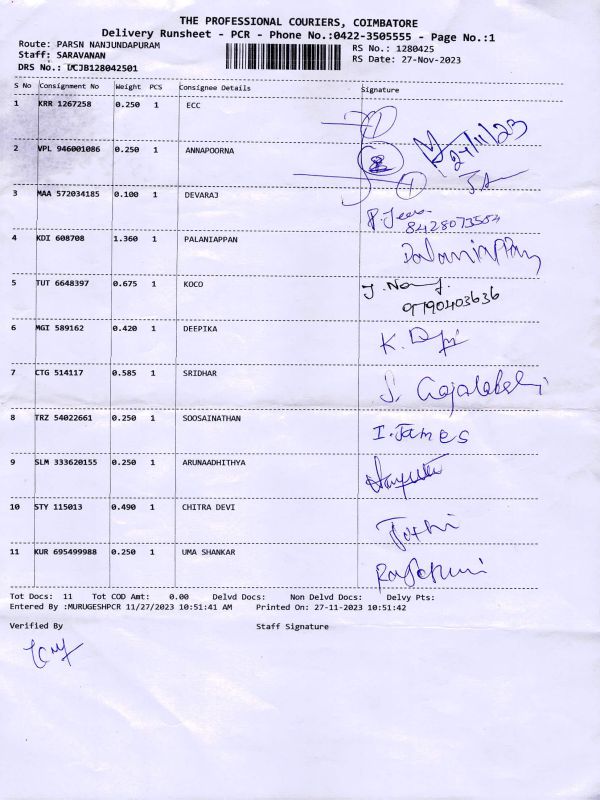 THE PROFESSIONAL COURIERS, COIMBATORE
Delivery Runsheet - PCR - Phone No.:0422-3505555 - Page No.:1
Route: PARSN NANJUNDAPURAM RS No.: 1280425
Staff: SARAVANAN RS Date: 27-Nov-2023
DRS No.: UCJB128042501
S No Consignment No Weight PCS Consignee Details Signature
1 KRR 1267258 0.250 1 ECC
27/11/23
2 VPL 946001086 0.250 1 ANNAPOORNA
3 MAA 572034185 0.100 1 DEVARAJ
8428073504
4 KDI 608708 1.360 1 PALANIAPPAN Palaniappan
5 TUT 6648397 0.675 1 KOCO
9790403636
6 MGI 589162 0.420 1 DEEPIKA K.
7 CTG 514117 0.585 1 SRIDHAR S.
8 TRZ 54022661 0.250 1 SOOSAINATHAN I. James
9 SLM 333620155 0.250 1 ARUNAADHITHYA
10 STY 115013 0.490 1 CHITRA DEVI
11 KUR 695499988 0.250 1 UMA SHANKAR
Tot Docs: 11 Tot COD Amt: 0.00 Delvd Docs: Non Delvd Docs: Delvy Pts:
Entered By :MURUGESHPCR 11/27/2023 10:51:41 AM Printed On: 27-11-2023 10:51:42
Verified By Staff Signature